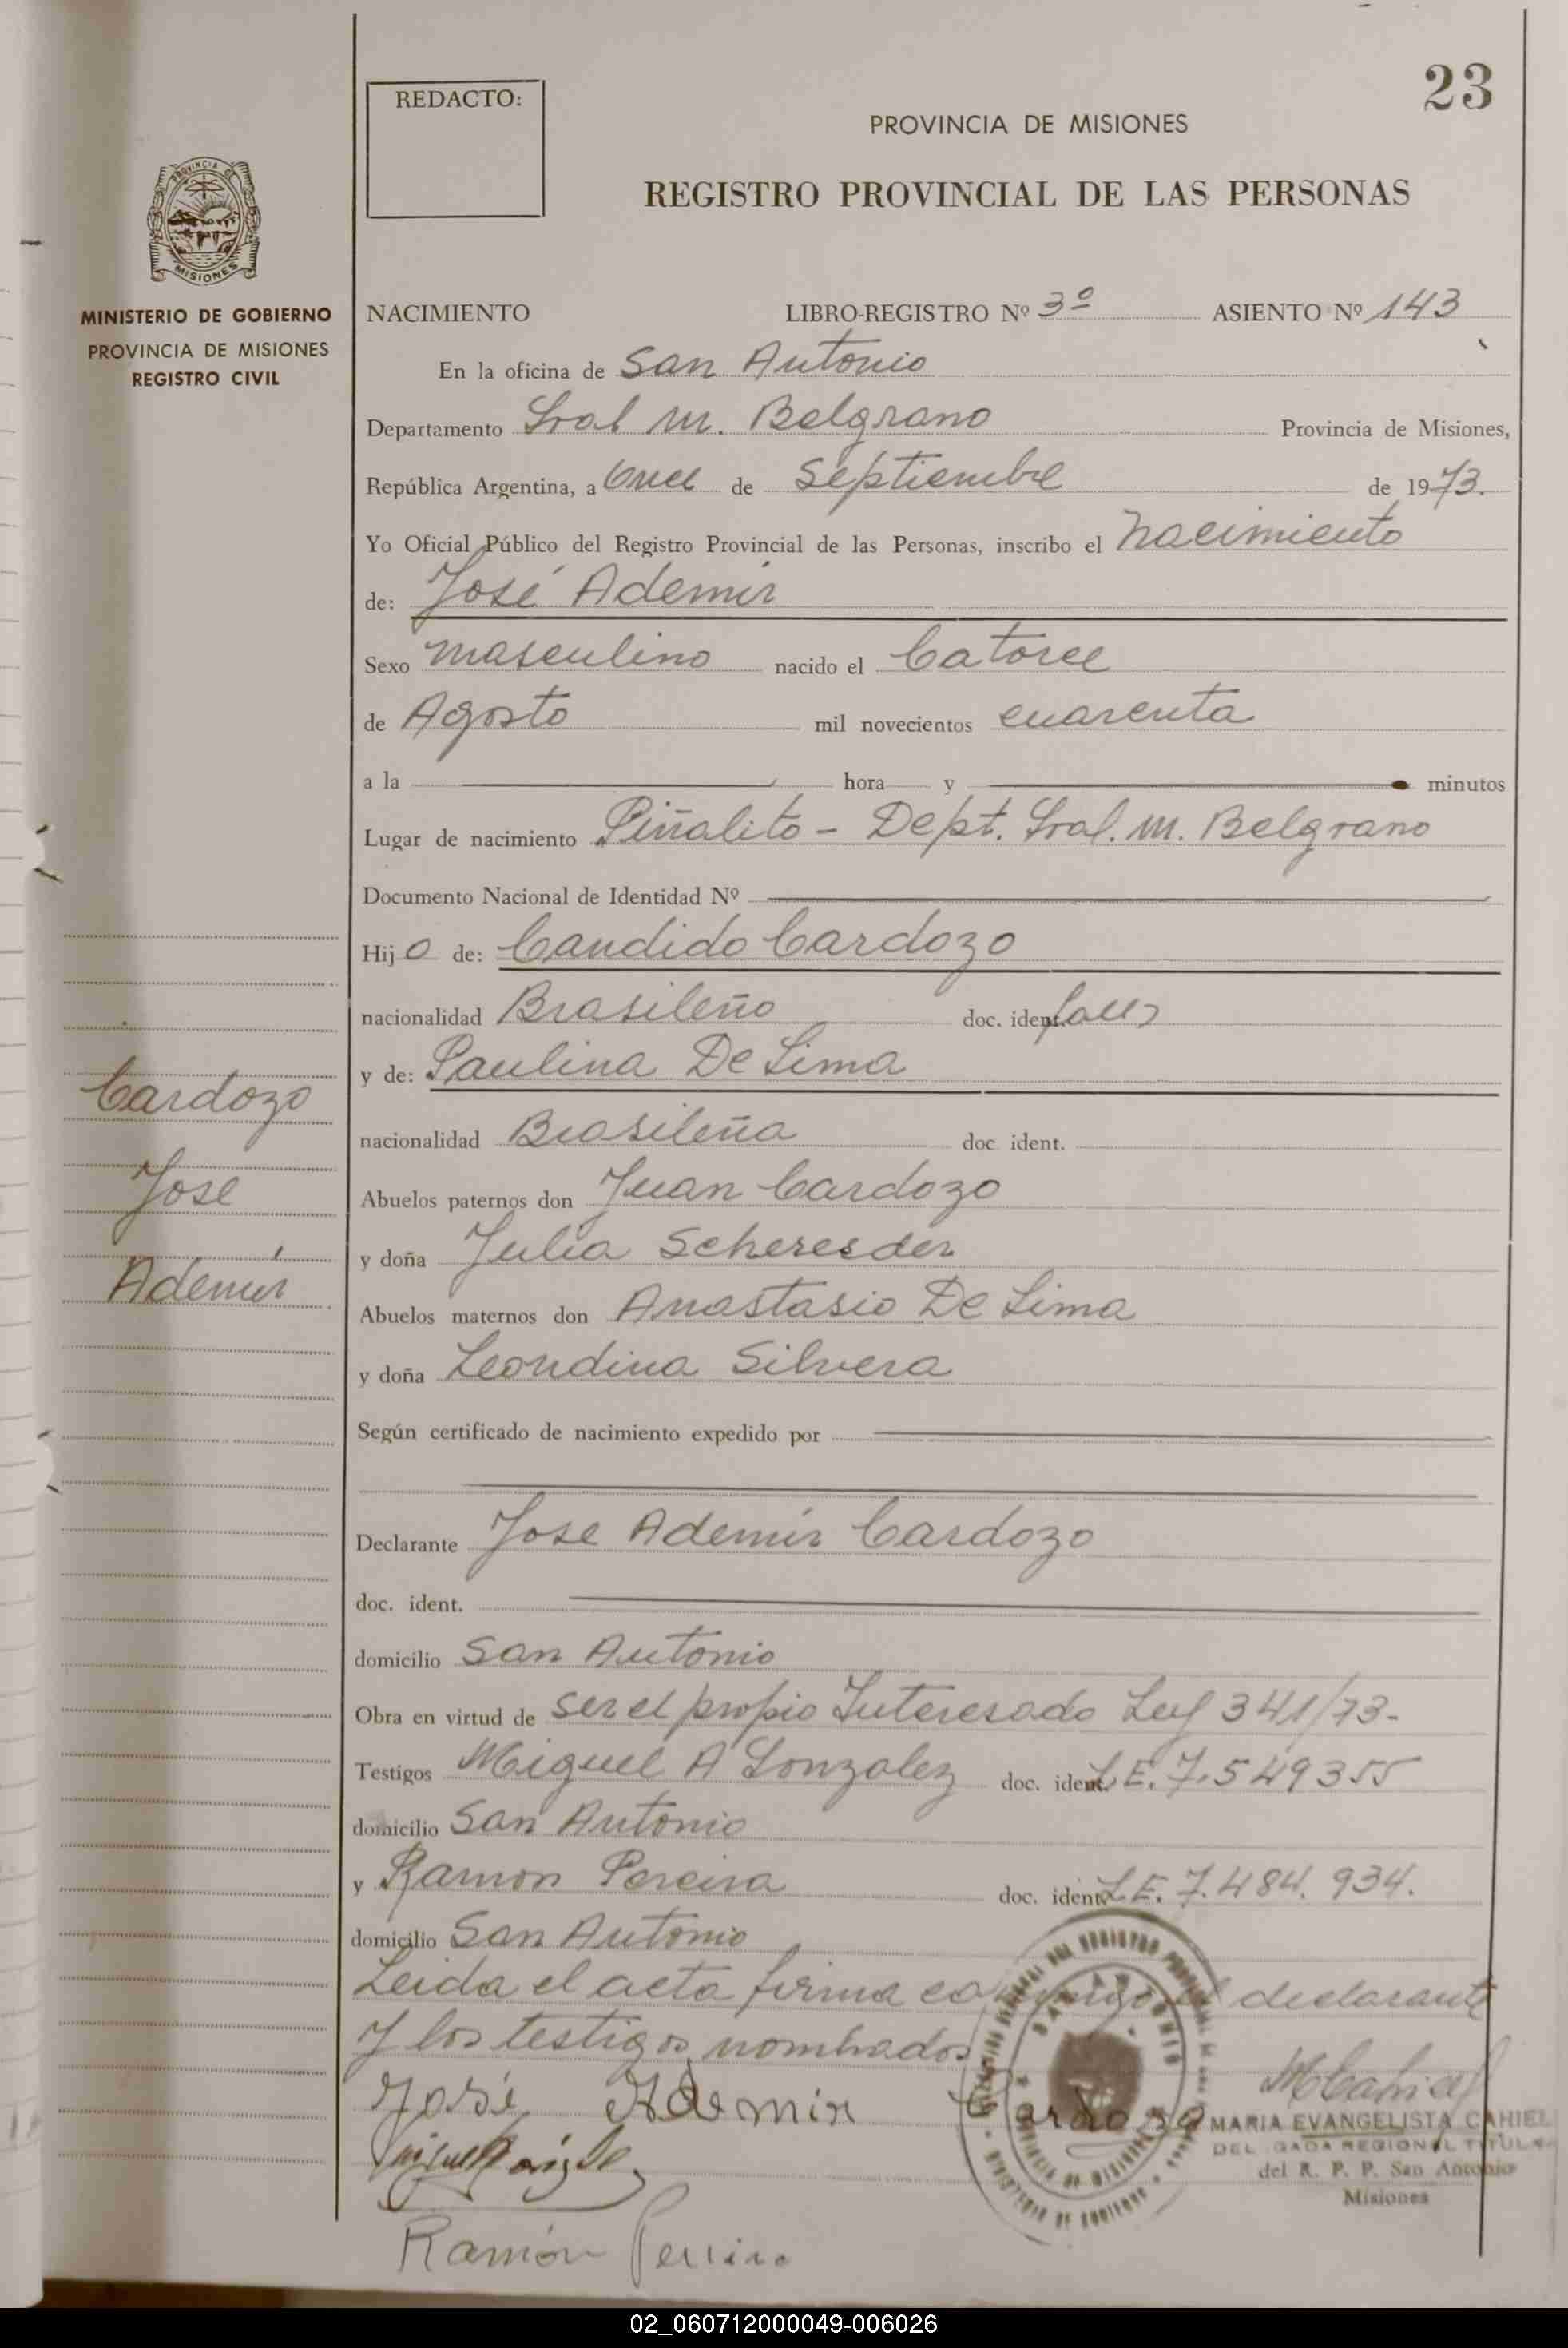 23
REDACTO:
PROVINCIA DE MISIONES
REGISTRO PROVINCIAL DE LAS PERSONAS
PROVINCIA DE
MISIONES
MINISTERIO DE GOBIERNO
PROVINCIA DE MISIONES
REGISTRO CIVIL
NACIMIENTO LIBRO-REGISTRO Nº 3º ASIENTO Nº 143
En la oficina de San Antonio
Departamento Gral M. Belgrano Provincia de Misiones,
República Argentina, a Once de Septiembre de 1973.
Yo Oficial Público del Registro Provincial de las Personas, inscribo el Nacimiento
de: José Ademir
Sexo masculino nacido el Catorce
de Agosto mil novecientos cuarenta
a la hora y minutos
Lugar de nacimiento Piñalito - Dept. Gral. M. Belgrano
Documento Nacional de Identidad Nº
Hijo de: Candido Cardozo
nacionalidad Brasileño doc. ident.
y de: Paulina De Lima
nacionalidad Brasileña doc ident.
Abuelos paternos don Juan Cardozo
y doña Julia Scheresder
Abuelos maternos don Anastasio De Lima
y doña Leondina Silvera
Según certificado de nacimiento expedido por
Declarante Jose Ademir Cardozo
doc. ident.
domicilio San Antonio
Obra en virtud de ser el propio Interesado Ley 341/73-
Testigos Miguel A Gonzalez doc. ident. L.E. 7.549355
domicilio San Antonio
y Ramon Pereira doc. ident. L.E. 7.484.934.
domicilio San Antonio
Leida el acta firma conmigo el declarante
y los testigos nombrados
José Ademir Cardozo
MARIA EVANGELISTA CAHIEL
DELEGADA REGIONAL TITULAR
del R. P. P. San Antonio
Misiones
Ramón Pereira
Cardozo
Jose
Ademir
02_060712000049-006026